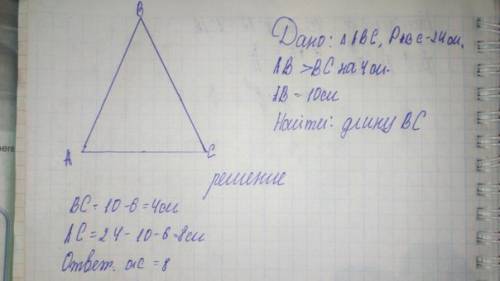 B
A
C
Дано: △ABC, PABC - 24см.
AB > BC на 4 см.
AB - 10см
Найти: длину BC
решение
BC = 10 - 6 = 4см
AC = 24 - 10 - 6 = 8см
Ответ. ас = 8